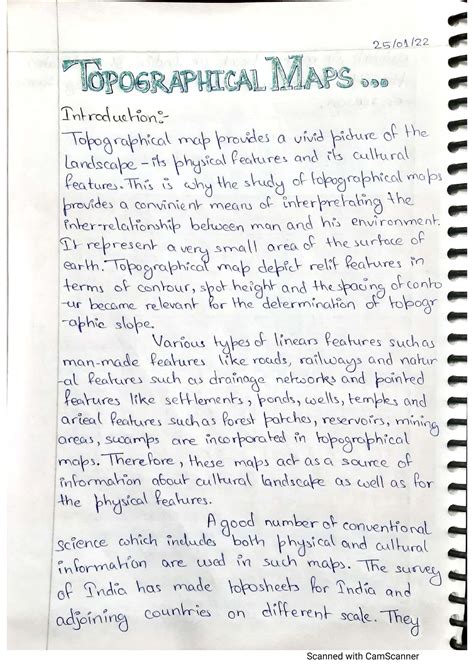 25/01/22
TOPOGRAPHICAL MAPS...
Introduction:-
Topographical map provides a vivid picture of the
landscape - its physical features and its cultural
features. This is why the study of topographical maps
provides a convinient means of interpretating the
inter-relationship between man and his environment.
It represent a very small area of the surface of
earth. Topographical map depict relif features in
terms of contour, spot height and the spacing of conto
-ur became relevant for the determination of topogr
-aphic slope.
Various types of linears features such as
man-made features like roads, railways and natur
-al features such as drainage networks and pointed
features like settlements, ponds, wells, temples and
arieal features such as forest patches, reservoirs, mining
areas, swamps are incorporated in topographical
maps. Therefore, these maps act as a source of
information about cultural landscape as well as for
the physical features.
A good number of conventional
science which includes both physical and cultural
information are used in such maps. The survey
of India has made toposheets for India and
adjoining countries on different scale. They
Scanned with CamScanner